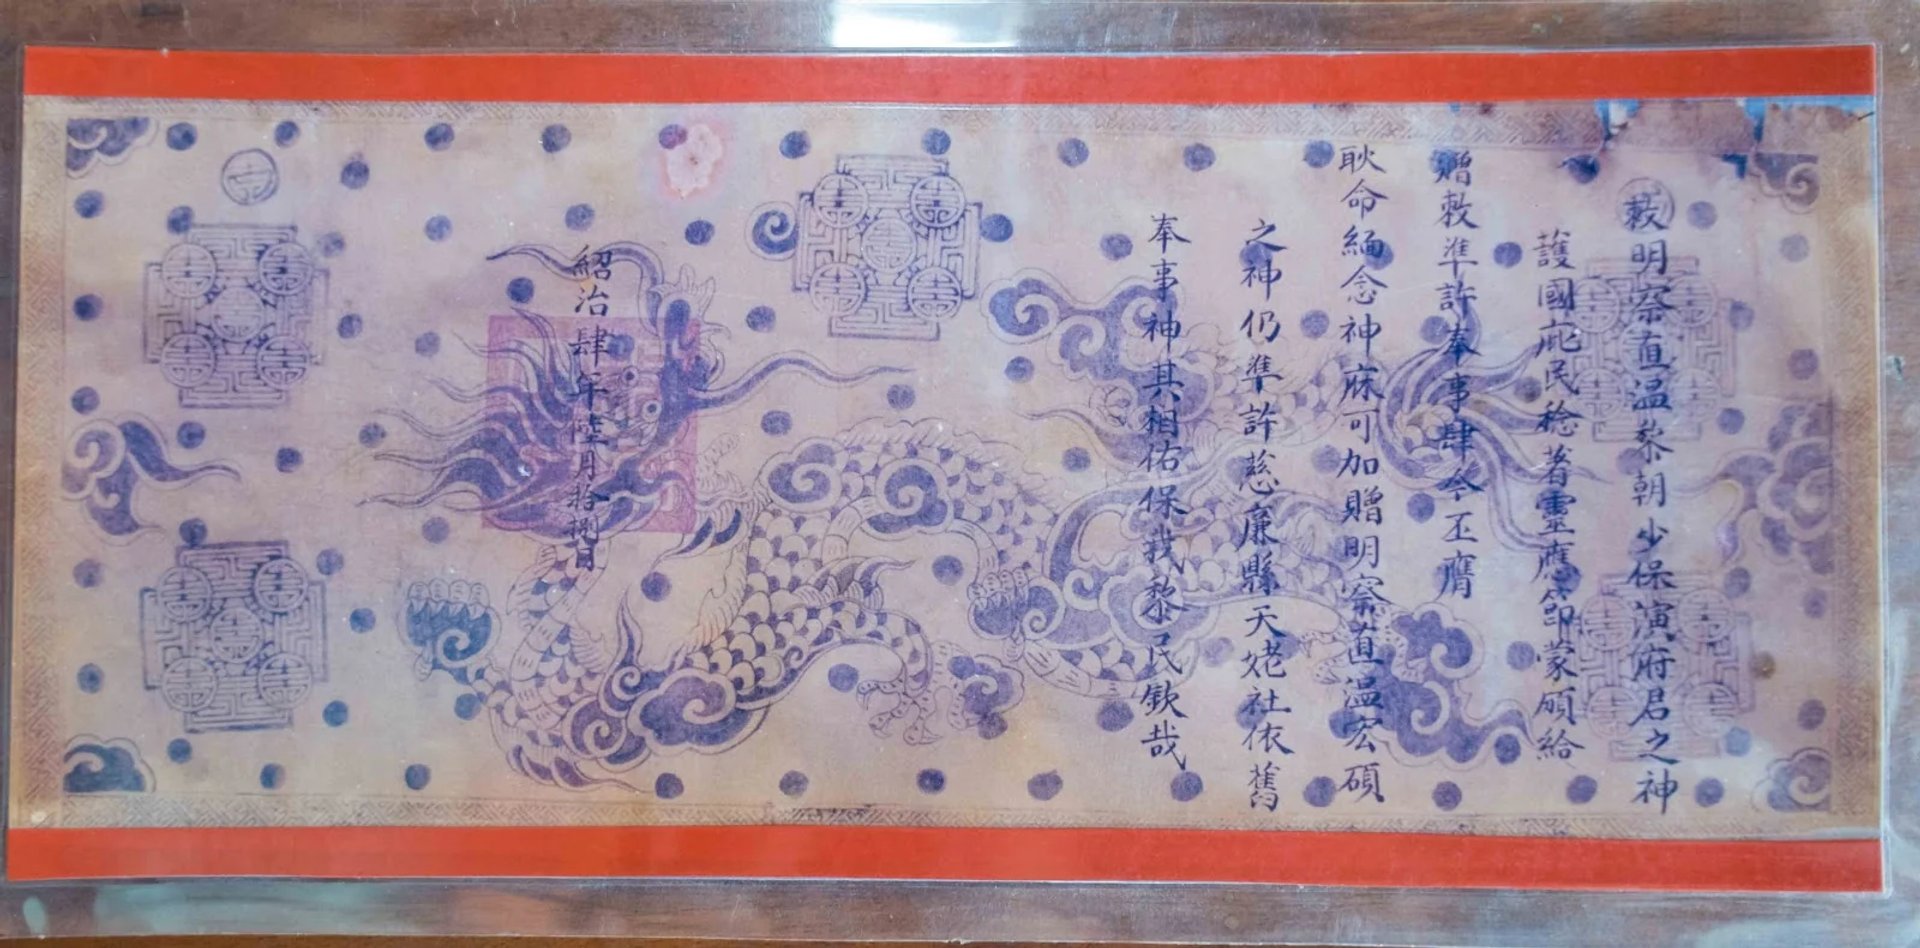 敕明察直温黎朝少保演府君之神
護國庇民稔著靈應節蒙頒給
贈敕準許奉事肆今丕膺
耿命緬念神庥可加贈明察直温宏碩
之神仍準許慈廉縣天姥社依舊
奉事神其相佑保我黎民欽哉
紹治肆年陸月拾捌日